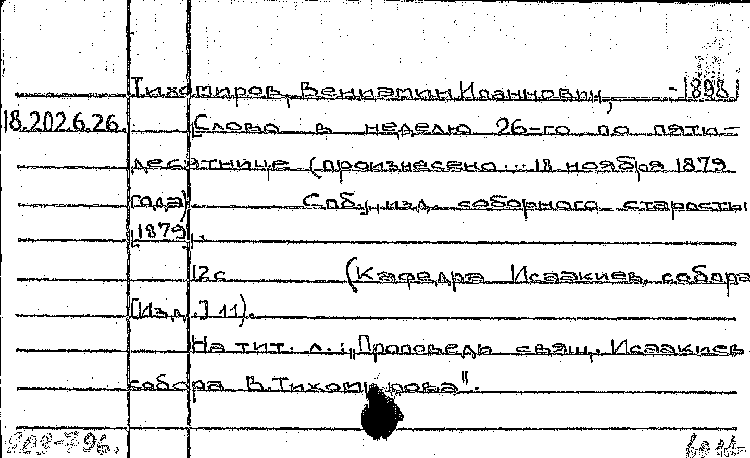 Тихомиров, Вениамин Иоаннович, -1898
18.202.6.26. Слово в неделю 26-го по пяти-
десятнице (произнесено... 18 ноября 1879
года). Спб., изд. соборного старосты
1879.
12с (Кафедра Исаакиев. собора
[Изд.] 11).
На тит. л.: "Проповедь свящ. Исаакиев
собора В.Тихомирова".